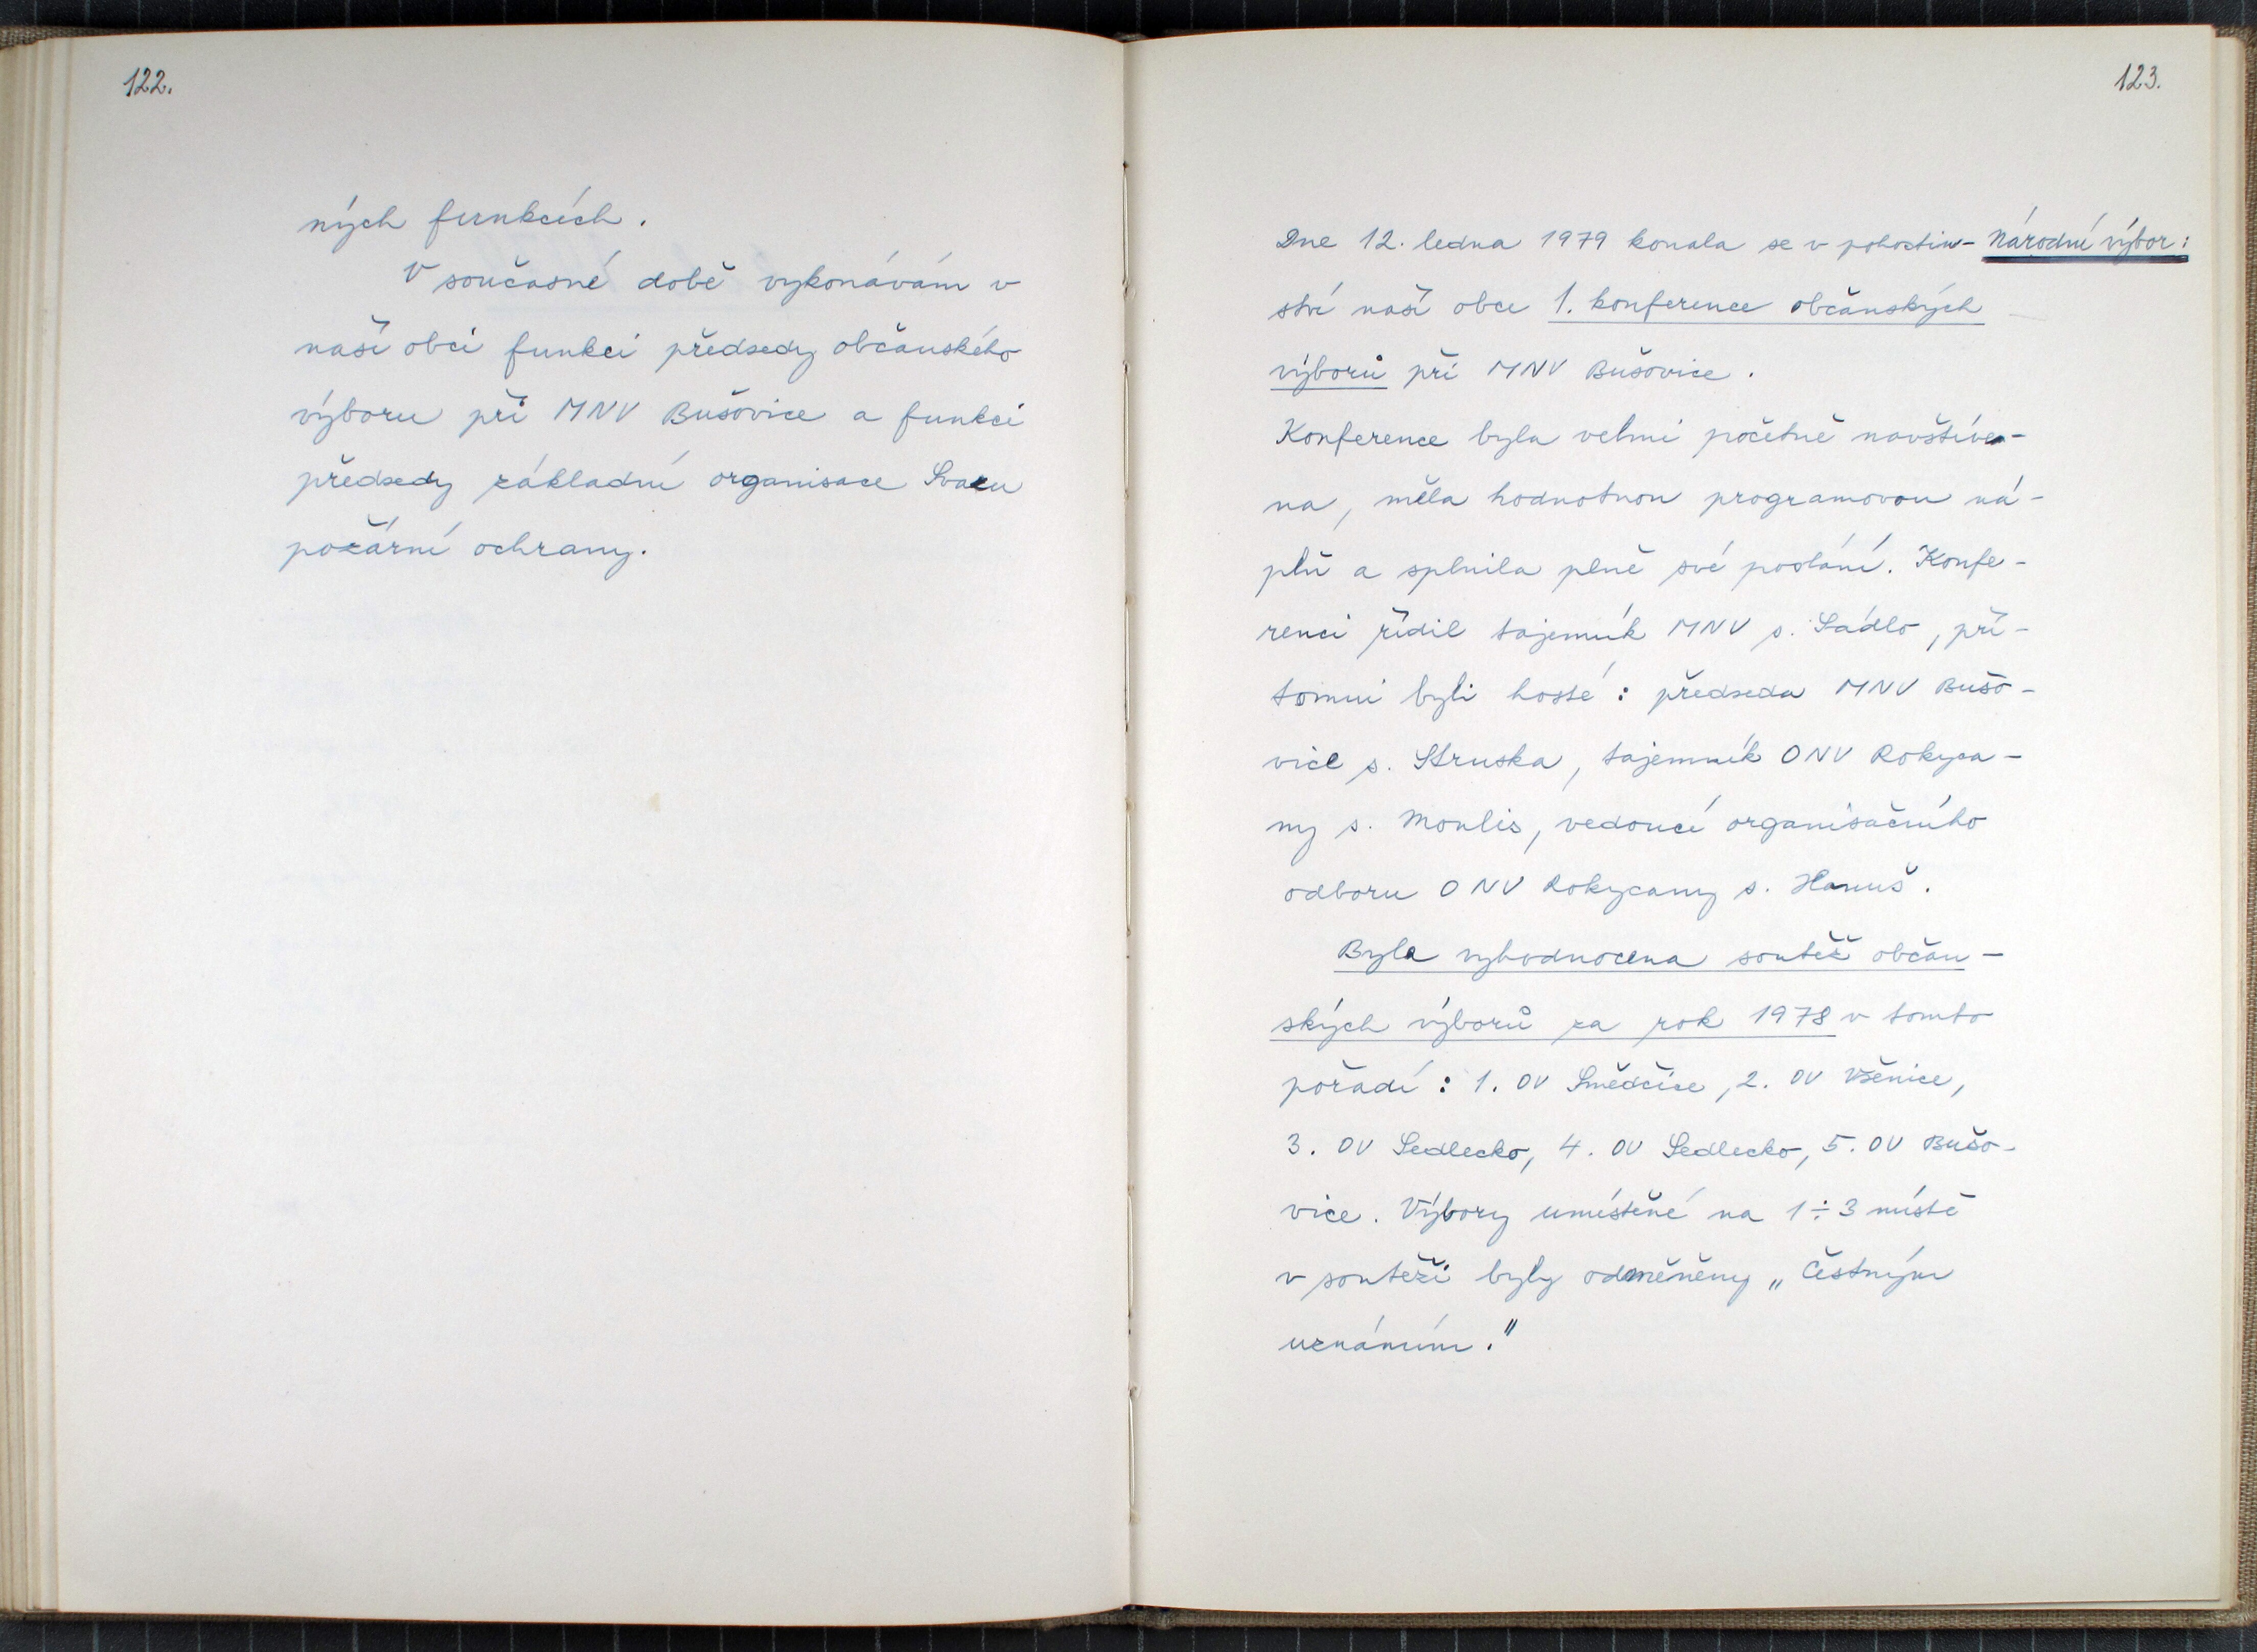 122.
ných funkcích.
V současné době vykonávám v
naší obci funkci předsedy občanského
výboru při MNV Bušovice a funkci
předsedy základní organisace Svazu
požární ochrany.
123.
Národní výbor:
Dne 12. ledna 1979 konala se v pohostin-
ství naší obce 1. konference občanských
výborů při MNV Bušovice.
Konference byla velmi početně navštíve-
na, měla hodnotnou programovou ná-
plň a splnila plně své poslání. Konfe-
renci řídil tajemník MNV s. Sádlo, pří-
tomni byli hosté: předseda MNV Bušo-
vice s. Struska, tajemník ONV Rokyca-
ny s. Moulis, vedoucí organisačního
odboru ONV Rokycany s. Hanuš.
Byla vyhodnocena soutěž občan-
ských výborů za rok 1978 v tomto
pořadí: 1. OV Smědčice, 2. OV Všenice,
3. OV Sedlecko, 4. OV Sedlecko, 5. OV Bušo-
vice. Výbory umístěné na 1÷3 místě
v soutěži byly odměněny „Čestným
uznáním."